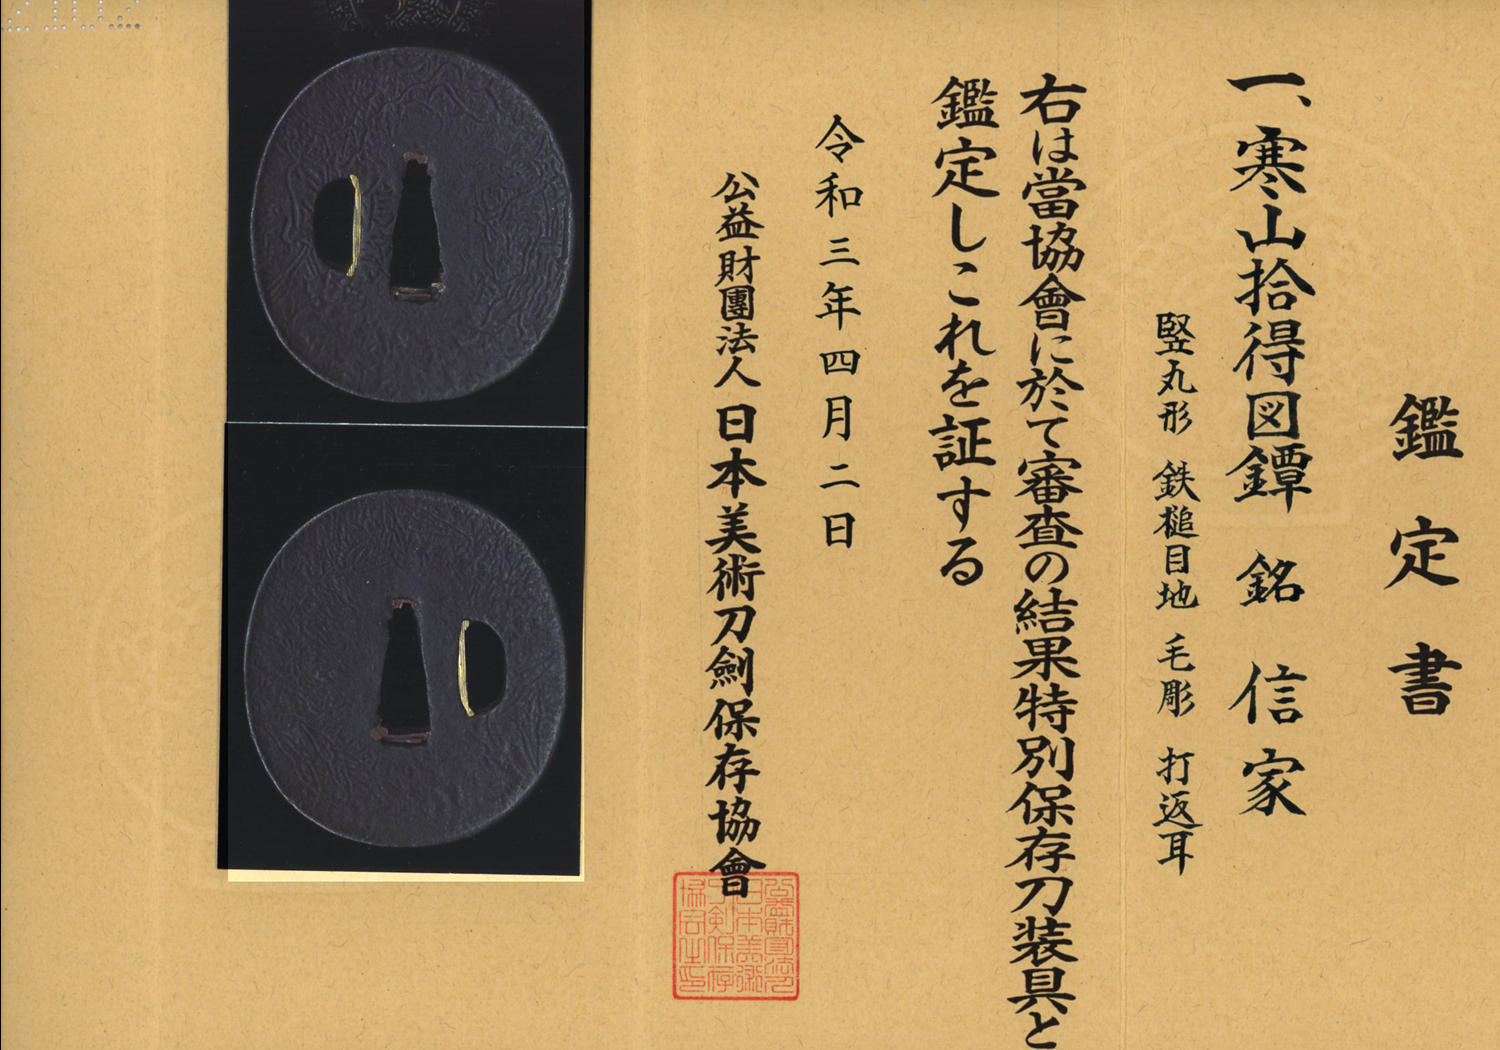 鑑定書
一、寒山拾得図鐔 銘 信家
竪丸形 鉄槌目地 毛彫 打返耳
右は當協會に於て審査の結果特別保存刀装具と
鑑定しこれを証する
令和三年四月二日
公益財團法人 日本美術刀劍保存協會